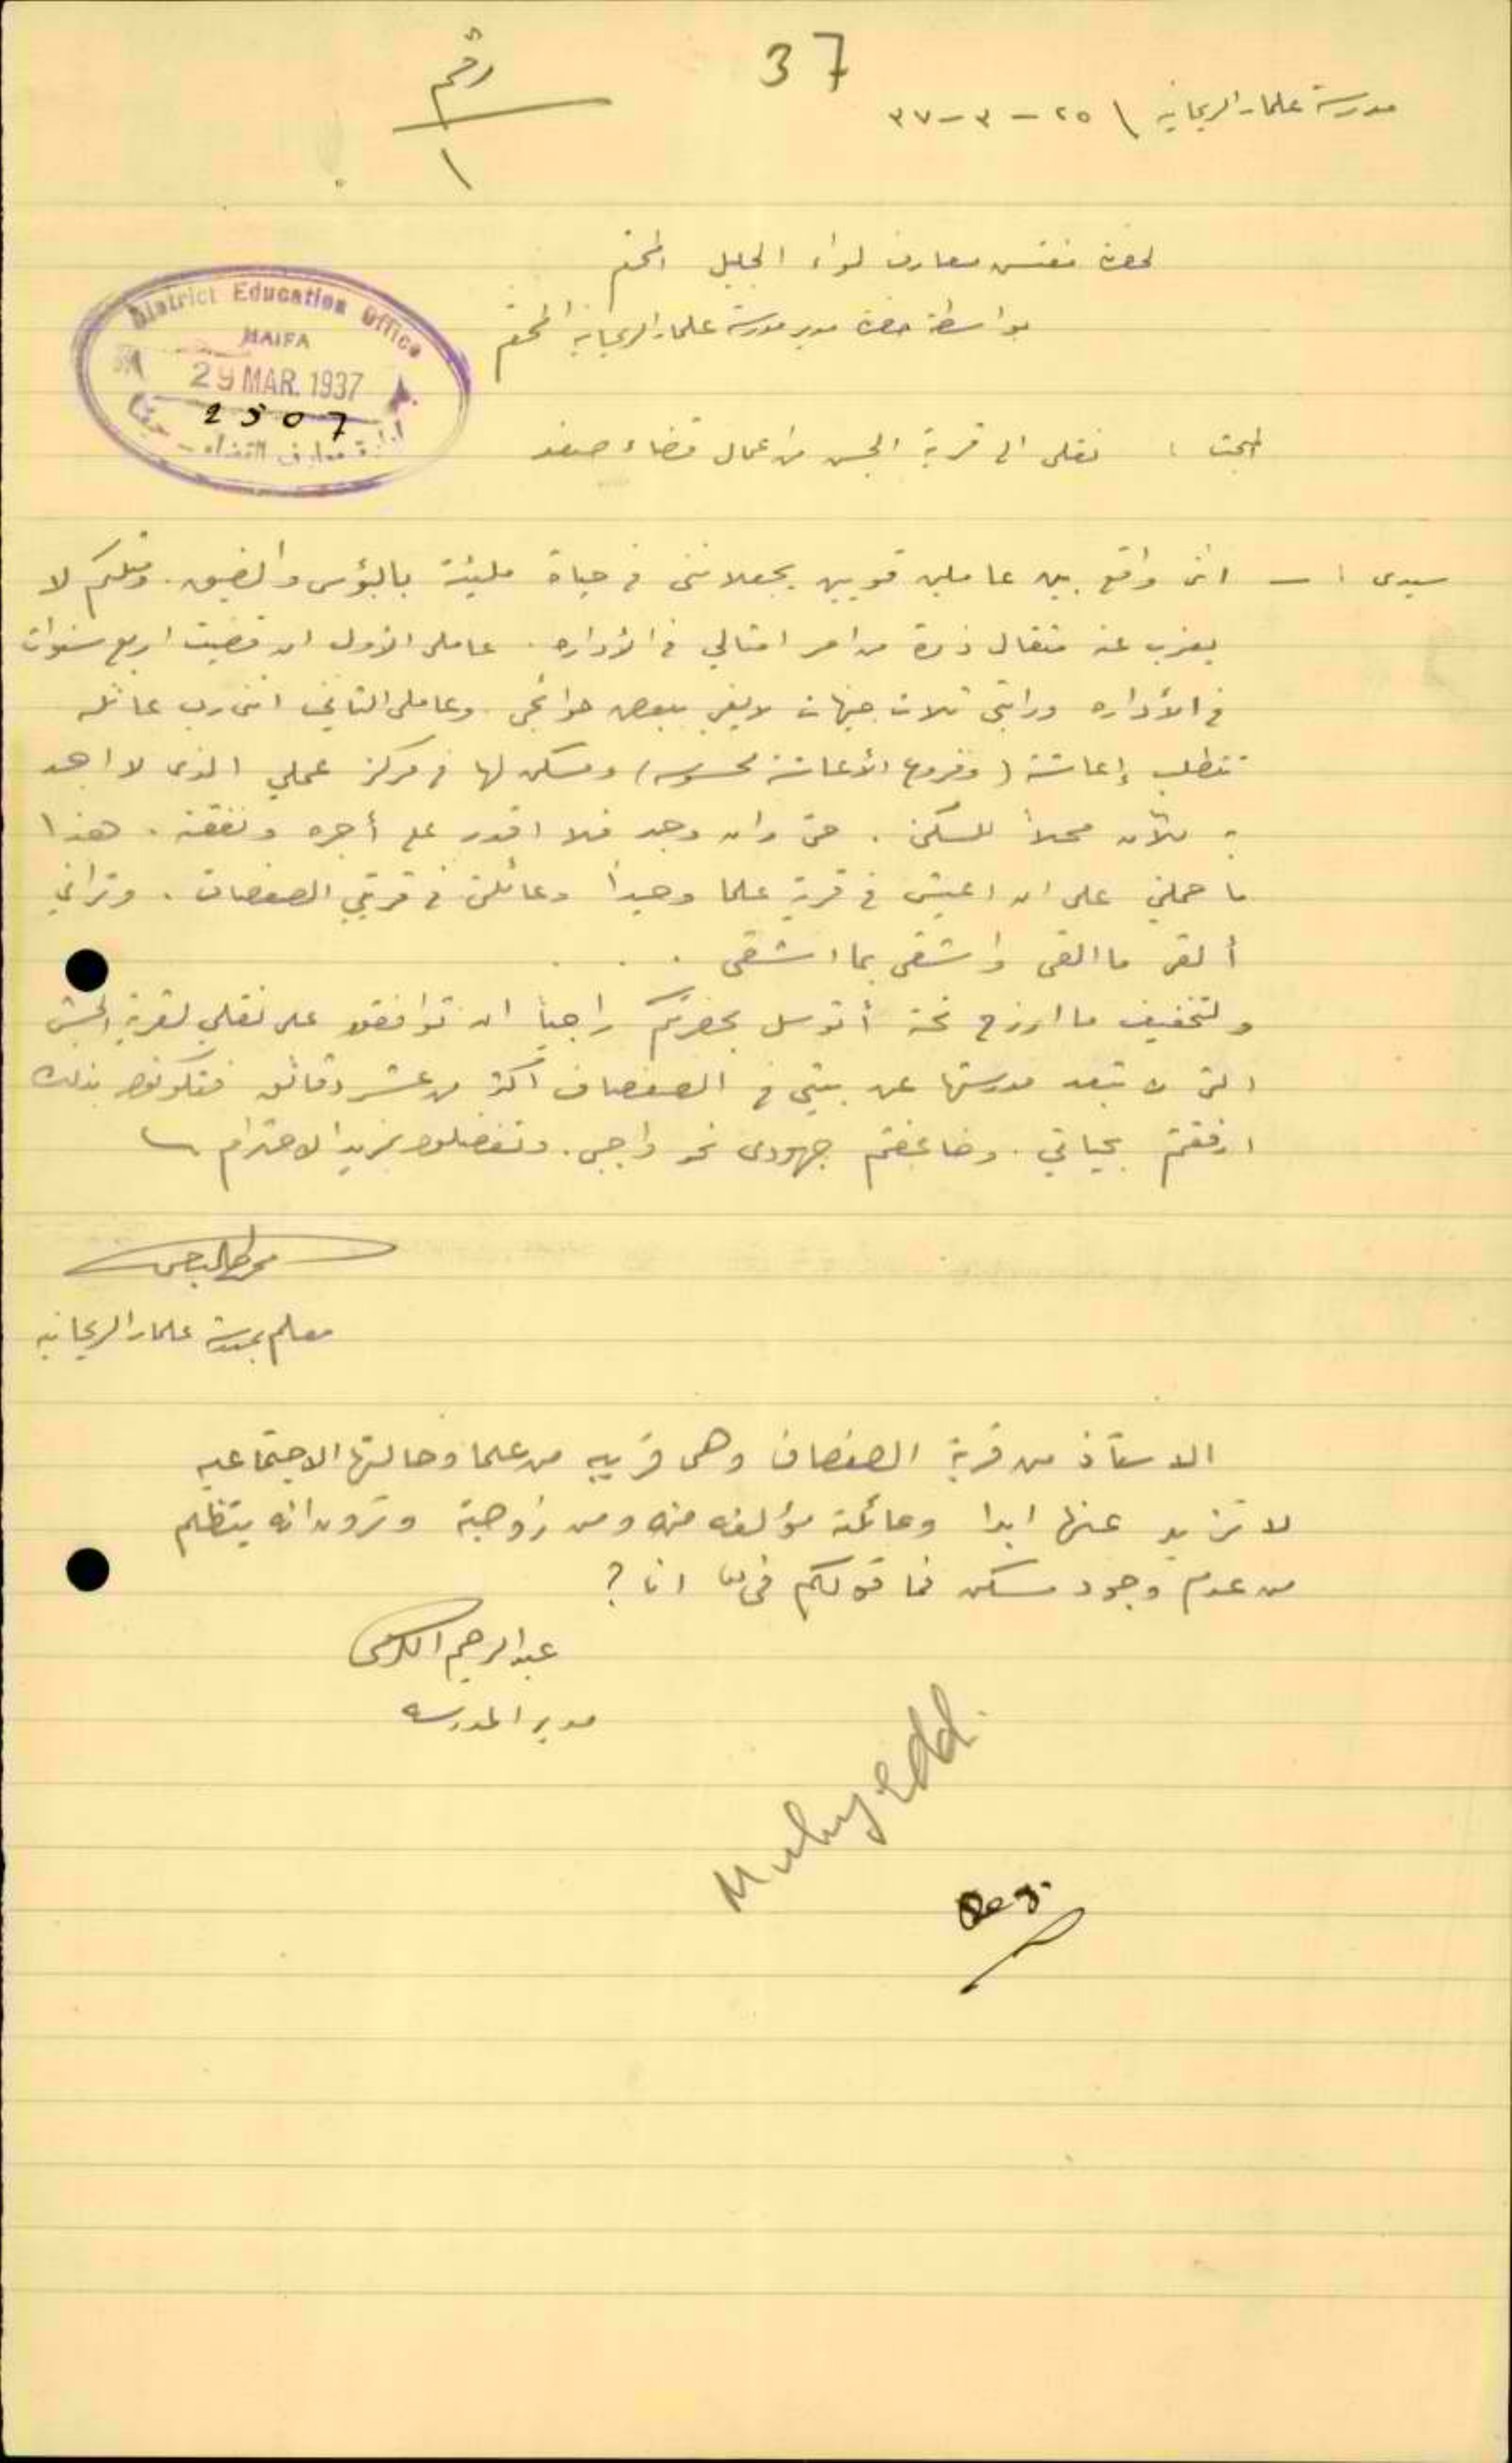 37
رقم
١
مدرسة علما والريحانيه \ ٢٥ - ٣ - ٣٧
لحضرة مفتش معارف لواء الجليل المحترم
بواسطة حضرة مدير مدرسة علما والريحانية المحترم
District Education Office
HAIFA
29 MAR. 1937
2507
ادارة معارف القضاء - حيفا
المبحث : نقلي الى قرية الجش من اعمال قضاء صفد
سيدي :ـ انني واقع بين عاملين قويين يجعلانني في حياة مليئة بالبؤس والضيق. ومثلكم لا
يعزب عنه مثقال ذرة من امر امثالي في الأداره. عاملي الأول ان قضيت اربع سنوات
في الأداره وراتبي ثلاث جنيهات لا يفي ببعض حوائجي وعاملي الثاني انني رب عائله
تتطلب إعاشة (وفروع الأعاشة محسوسه) ومسكن لها في مركز عملي الذي لا اجد
به للآن محلاً للسكن. حتى وان وجد فلا اقدر على أجره ونفقته. هذا
ما حملني على ان اعيش في قرية علما وحيداً وعائلتي في قريتي الصفصاف. وتراني
ألقى ما القى واشقى بما اشقى . . .
ولتخفيف ما ارزح تحته أتوسل بحضرتكم راجياً ان توافقوا على نقلي لقرية الجش
التي لا تبعد مدرستها عن بيتي في الصفصاف اكثر من عشر دقائق فتكونوا بذلك
ارفقتم بحياتي. وضاعفتم جهودي نحو واجبي. وتفضلوا بمزيد الاحترام
معلم بمدرسة علما والريحانيه
الاستاذ من قرية الصفصاف وهي قريبه من علما وحالتها الاجتماعيه
لا تزيد عنها ابدا وعائلته مؤلفه منه ومن زوجته وترون انه يتظلم
من عدم وجود مسكن فما قولكم في انا ?
عبد الرحيم الكرمي
مدير المدرسه
Muhyedd.
Reg.